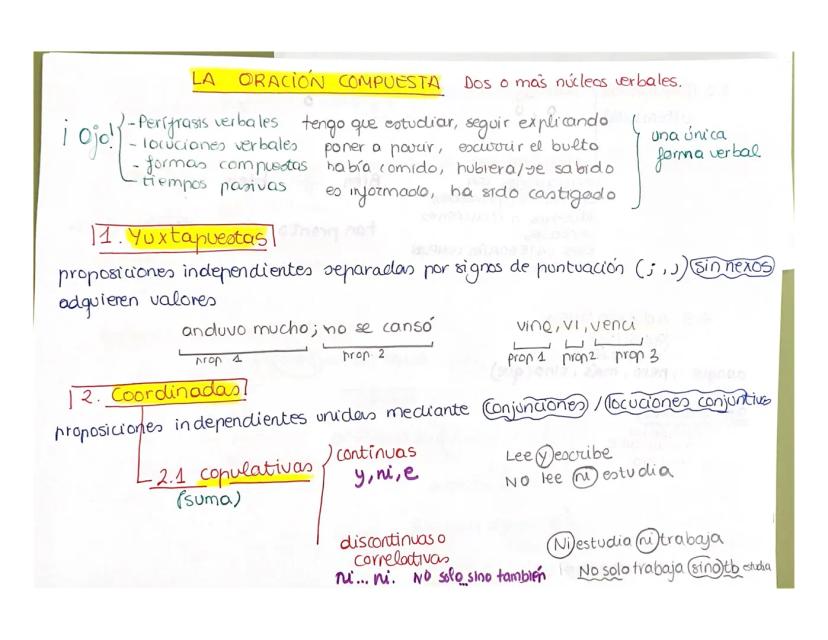 LA ORACIÓN COMPUESTA Dos o más núcleos verbales.
¡Ojo!
- Perífrasis verbales tengo que estudiar, seguir explicando
- locuciones verbales poner a parir, escurrir el bulto
- formas compuestas había comido, hubiera/se sabido
- tiempos pasivas es informado, ha sido castigado
una única
forma verbal
1. Yuxtapuestas
proposiciones independientes separadas por signos de puntuación (; , ,) sin nexos
adquieren valores
anduvo mucho; no se cansó vine, vi, vencí
prop 1 prop. 2 prop 1 prop 2 prop 3
2. Coordinadas
proposiciones independientes unidas mediante conjunciones / locuciones conjuntivas
2.1 copulativas
(suma)
continuas Lee y escribe
y, ni, e No lee ni estudia
discontinuas o
correlativas
ni... ni. No solo...sino también
Ni estudia ni trabaja
No solo trabaja sino tb estudia